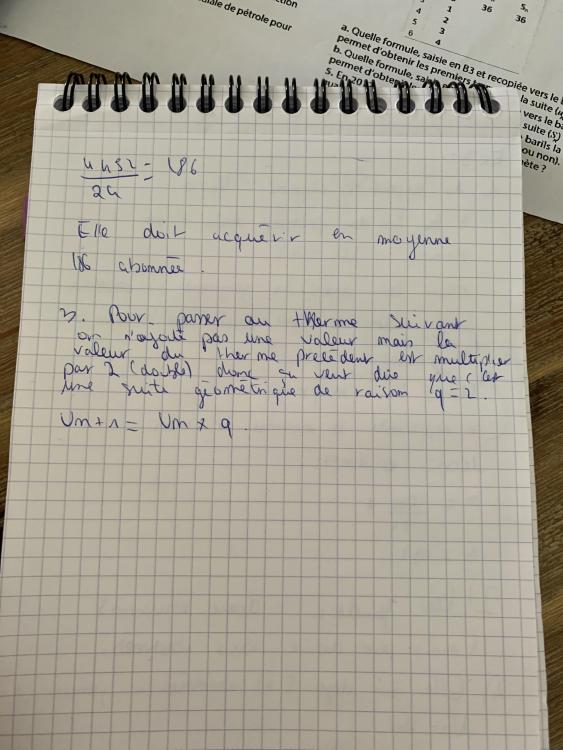 ction
diale de pétrole pour
Sn
1
36
36
4
2
5
3
6
4
a. Quelle formule, saisie en B3 et recopiée vers le
permet d'obtenir les premiers
la suite
b. Quelle formule,
vers le
permet d'obtenir
suite
5. En 20
barils la
ou non).
ète ?
4452 = 186
24
Elle doit acquérir en moyenne
186 abonnée.
3. Pour passer au therme suivant
on n'ajoute pas une valeur mais la
valeur du therme précédent est multiplier
par 2 (double) donc ça veut dire que c'est
une suite géométrique de raison q = 2.
Un+1 = Un x q.